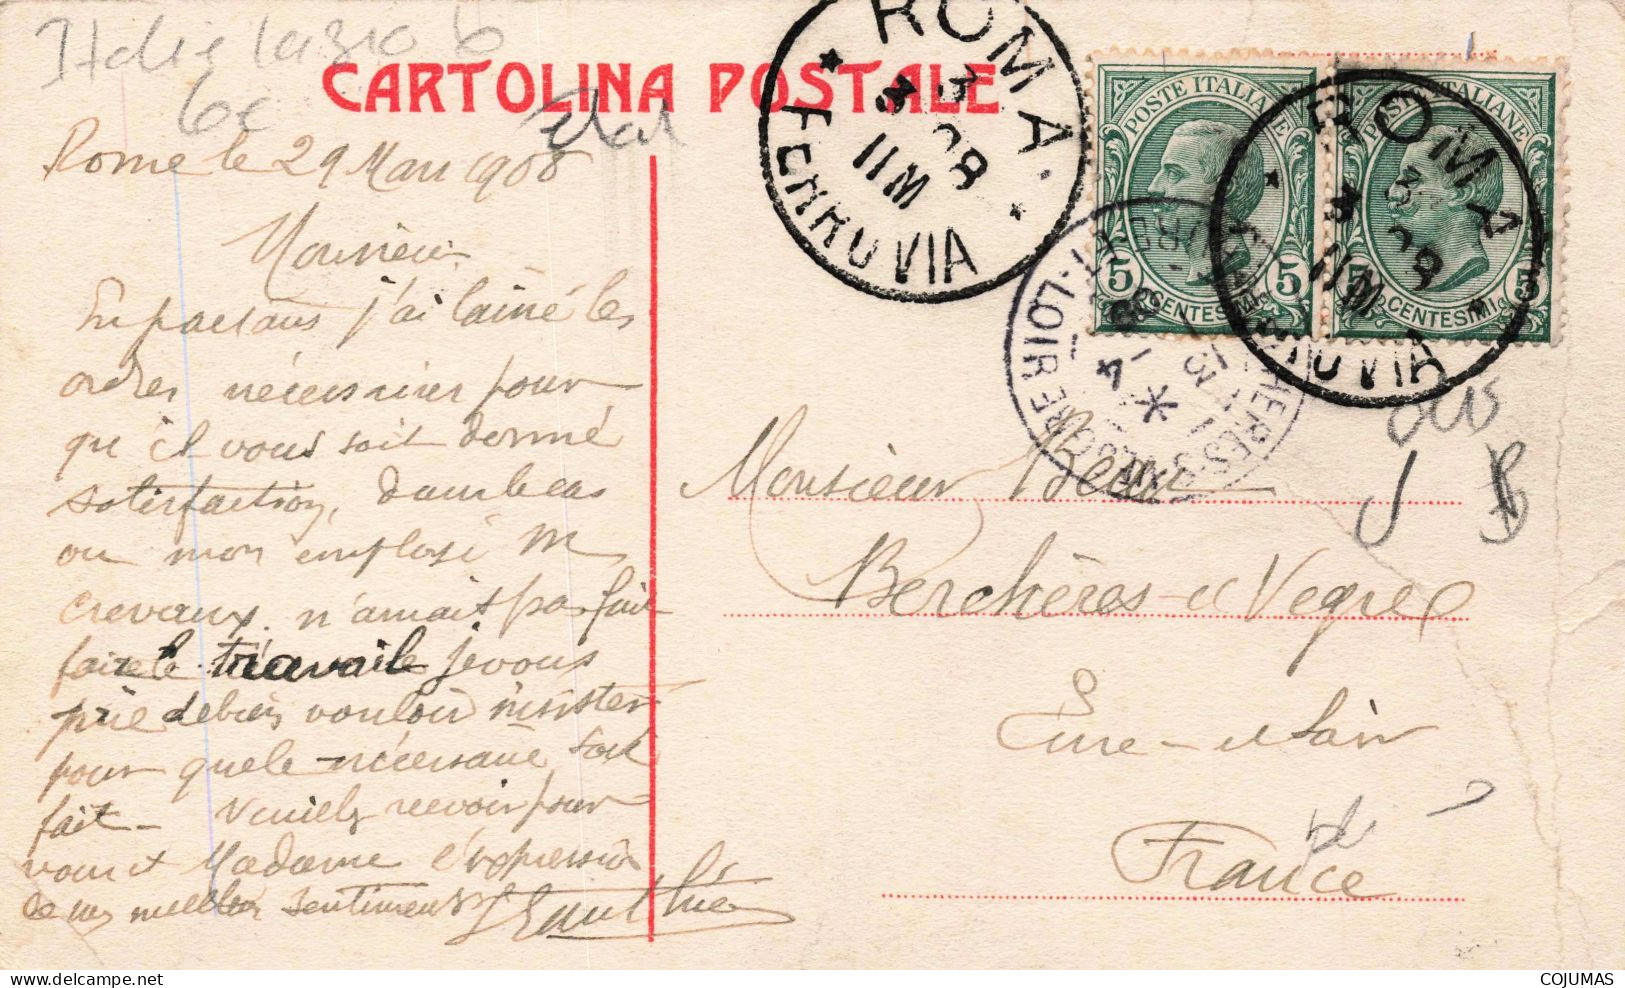 Italie Lazio
6c
CARTOLINA POSTALE
ROMA
3 3 08
11M
FERROVIA
POSTE ITALIANE
5 CENTESIMI 5
POSTE ITALIANE
5 CENTESIMI 5
ROMA
3 3 08
11M
FERROVIA
EURE-ET-LOIR
Rome le 29 Mars 1908
Monsieur
En partant j'ai laissé les
ordres nécessaires pour
qu'il vous soit donné
satisfaction, dans le cas
ou mon employé M
Crevaux n'aurait pas fait
faire le travail je vous
prie de bien vouloir insister
pour que le nécessaire soit
fait - Veuillez recevoir pour
vous et Madame l'expression
de mes meilleurs sentiments
Monsieur
Berchères-s/ Vegre
Eure-et-Loir
France
COJUMAS